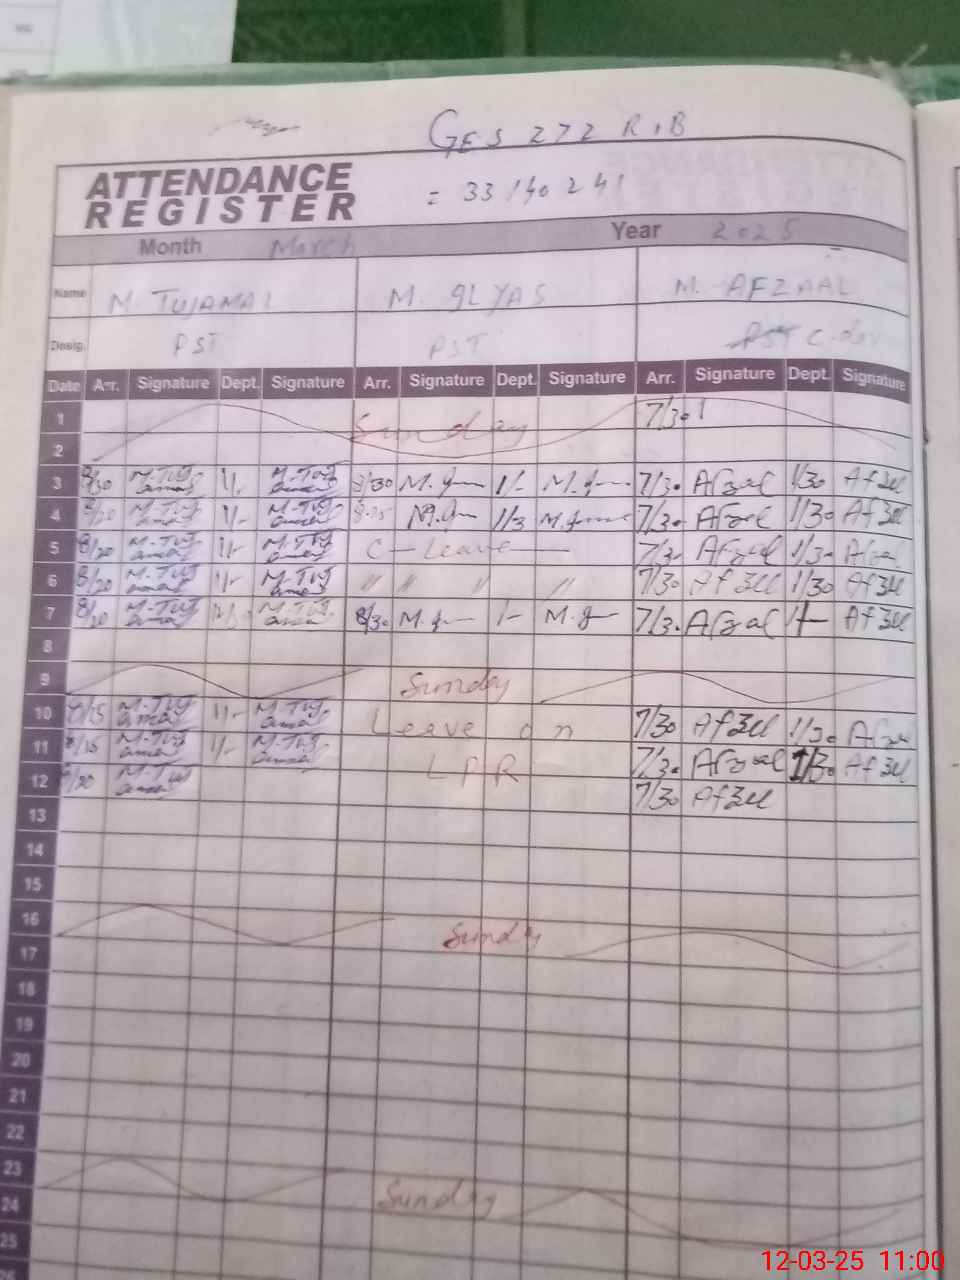 GES 272 R.B
ATTENDANCE
REGISTER
= 33140241
Month March Year 2025
Name M. TUJAMAL M. ILYAS M. AFZAAL
Desig. PST PST C. dev
Date Arr. Signature Dept. Signature Arr. Signature Dept. Signature Arr. Signature Dept. Signature
1 7/30
2 Sunday
3 8/30 M-Tuj amal 1/- M-Tuj amal 8/30 1/- 7/30 Afzal 1/30 Afzal
4 8/20 M-Tuj amal 1/- M-Tuj amal 8-25 1/3 7/30 Afzal 1/30 Afzal
5 8/20 M-Tuj amal 1/- M-Tuj amal C - Leave 7/30 Afzal 1/30 Afzal
6 8/20 M-Tuj amal 1/- M-Tuj amal " " " " 7/30 Afzal 1/30 Afzal
7 8/20 M-Tuj amal M-Tuj amal 8/30 1/- 7/30 Afzal 1/- Afzal
8
9 Sunday
10 8/25 M-Tuj amal 1/- M-Tuj amal Leave on 7/30 Afzal 1/30 Afzal
11 8/15 M-Tuj amal 1/- M-Tuj amal LPR 7/30 Afzal 1/30 Afzal
12 8/20 M-Tuj amal 7/30 Afzal
13
14
15
16 Sunday
17
18
19
20
21
22
23
24 Sunday
25
12-03-25 11:00